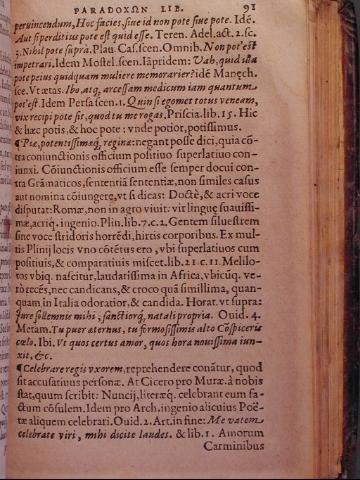 PARADOXΩN LIB. 91
peruincendum, Hoc facies, siue id non pote siue pote. Idē.
Aut si perditius pote est quid esse. Teren. Adel. act. 2. sc.
3. Nihil pote suprà. Plau. Cas. scen. Omnib. Non pot'est
impetrari. Idem Mostel. scen. Iampridem: Vah, quid illa
pote peius quidquam muliere memorarier? idē Manęch.
sce. Vt ætas. Ibo, atq; arcessam medicum iam quantum
pot'est. Idem Persa scen. 1. Quin si egomet totus veneam,
vix recipi pote sit, quod tu me rogas. Priscia. lib. 15. Hic
& hæc potis, & hoc pote: vnde potior, potissimus.
¶ Piæ, potentissimæq́; regina: negant posse dici, quia cō-
tra coniunctionis officium positiuo superlatiuo con-
iunxi. Cōiunctionis officium esse semper docui con-
tra Grāmaticos, sententiā sententiæ, non similes casus
aut nomina cōiungere, vt si dicas: Doctè, & acri voce
disputat: Romæ, non in agro viuit. vir linguę suauissi-
mæ, acriq́. ingenio. Plin. lib. 7. c. 2. Gentem siluestrem
sine voce stridoris horrēdi, hirtis corporibus. Ex mul-
tis Plinij locis vno cōtētus ero, vbi superlatiuos cum
positiuis, & comparatiuis miscet. lib. 21. c. 11. Melilo-
tos vbiq. nascitur, laudatissima in Africa, vbicūq. ve-
rò recēs, nec candicans, & croco quā simillima, quan-
quam in Italia odoratior, & candida. Horat. vt supra:
Iure sollemnis mihi, sanctiorq́, natali propria. Ouid. 4.
Metam. Tu puer æternus, tu formosissimis alto Conspiceris
cœlo. Ibi. Vt quos certus amor, quos hora nouissima iun-
xit, &c.
¶ Celebrare regis vxorem, reprehendere conātur, quod
sit accusatiuus personæ. At Cicero pro Muræ. à nobis
stat, quum scribit: Nuncij, literæq́. celebrant eum fa-
ctum cōsulem. Idem pro Arch. ingenio alicuius Poë-
tæ aliquem celebrati. Ouid. 2. Art. in fine: Me vatem
celebrate viri, mihi dicite laudes. & lib. 1. Amorum
Carminibus